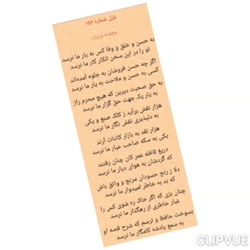 غزل شماره ۱۵۶
حافظ » غزلیات
به حسن و خلق و وفا کس به یار ما نرسد
تو را در این سخن انکار کار ما نرسد
اگر چه حسن فروشان به جلوه آمده‌اند
کسی به حسن و ملاحت به یار ما نرسد
به حق صحبت دیرین که هیچ محرم راز
به یار یک جهت حق گزار ما نرسد
هزار نقش برآید ز کلک صنع و یکی
به دلپذیری نقش نگار ما نرسد
هزار نقد به بازار کائنات آرند
یکی به سکه صاحب عیار ما نرسد
دریغ قافله عمر کان چنان رفتند
که گردشان به هوای دیار ما نرسد
دلا ز رنج حسودان مرنج و واثق باش
که بد به خاطر امیدوار ما نرسد
چنان بزی که اگر خاک ره شوی کس را
غبار خاطری از رهگذار ما نرسد
بسوخت حافظ و ترسم که شرح قصه او
به سمع پادشه کامگار ما نرسد
CLIPVUE